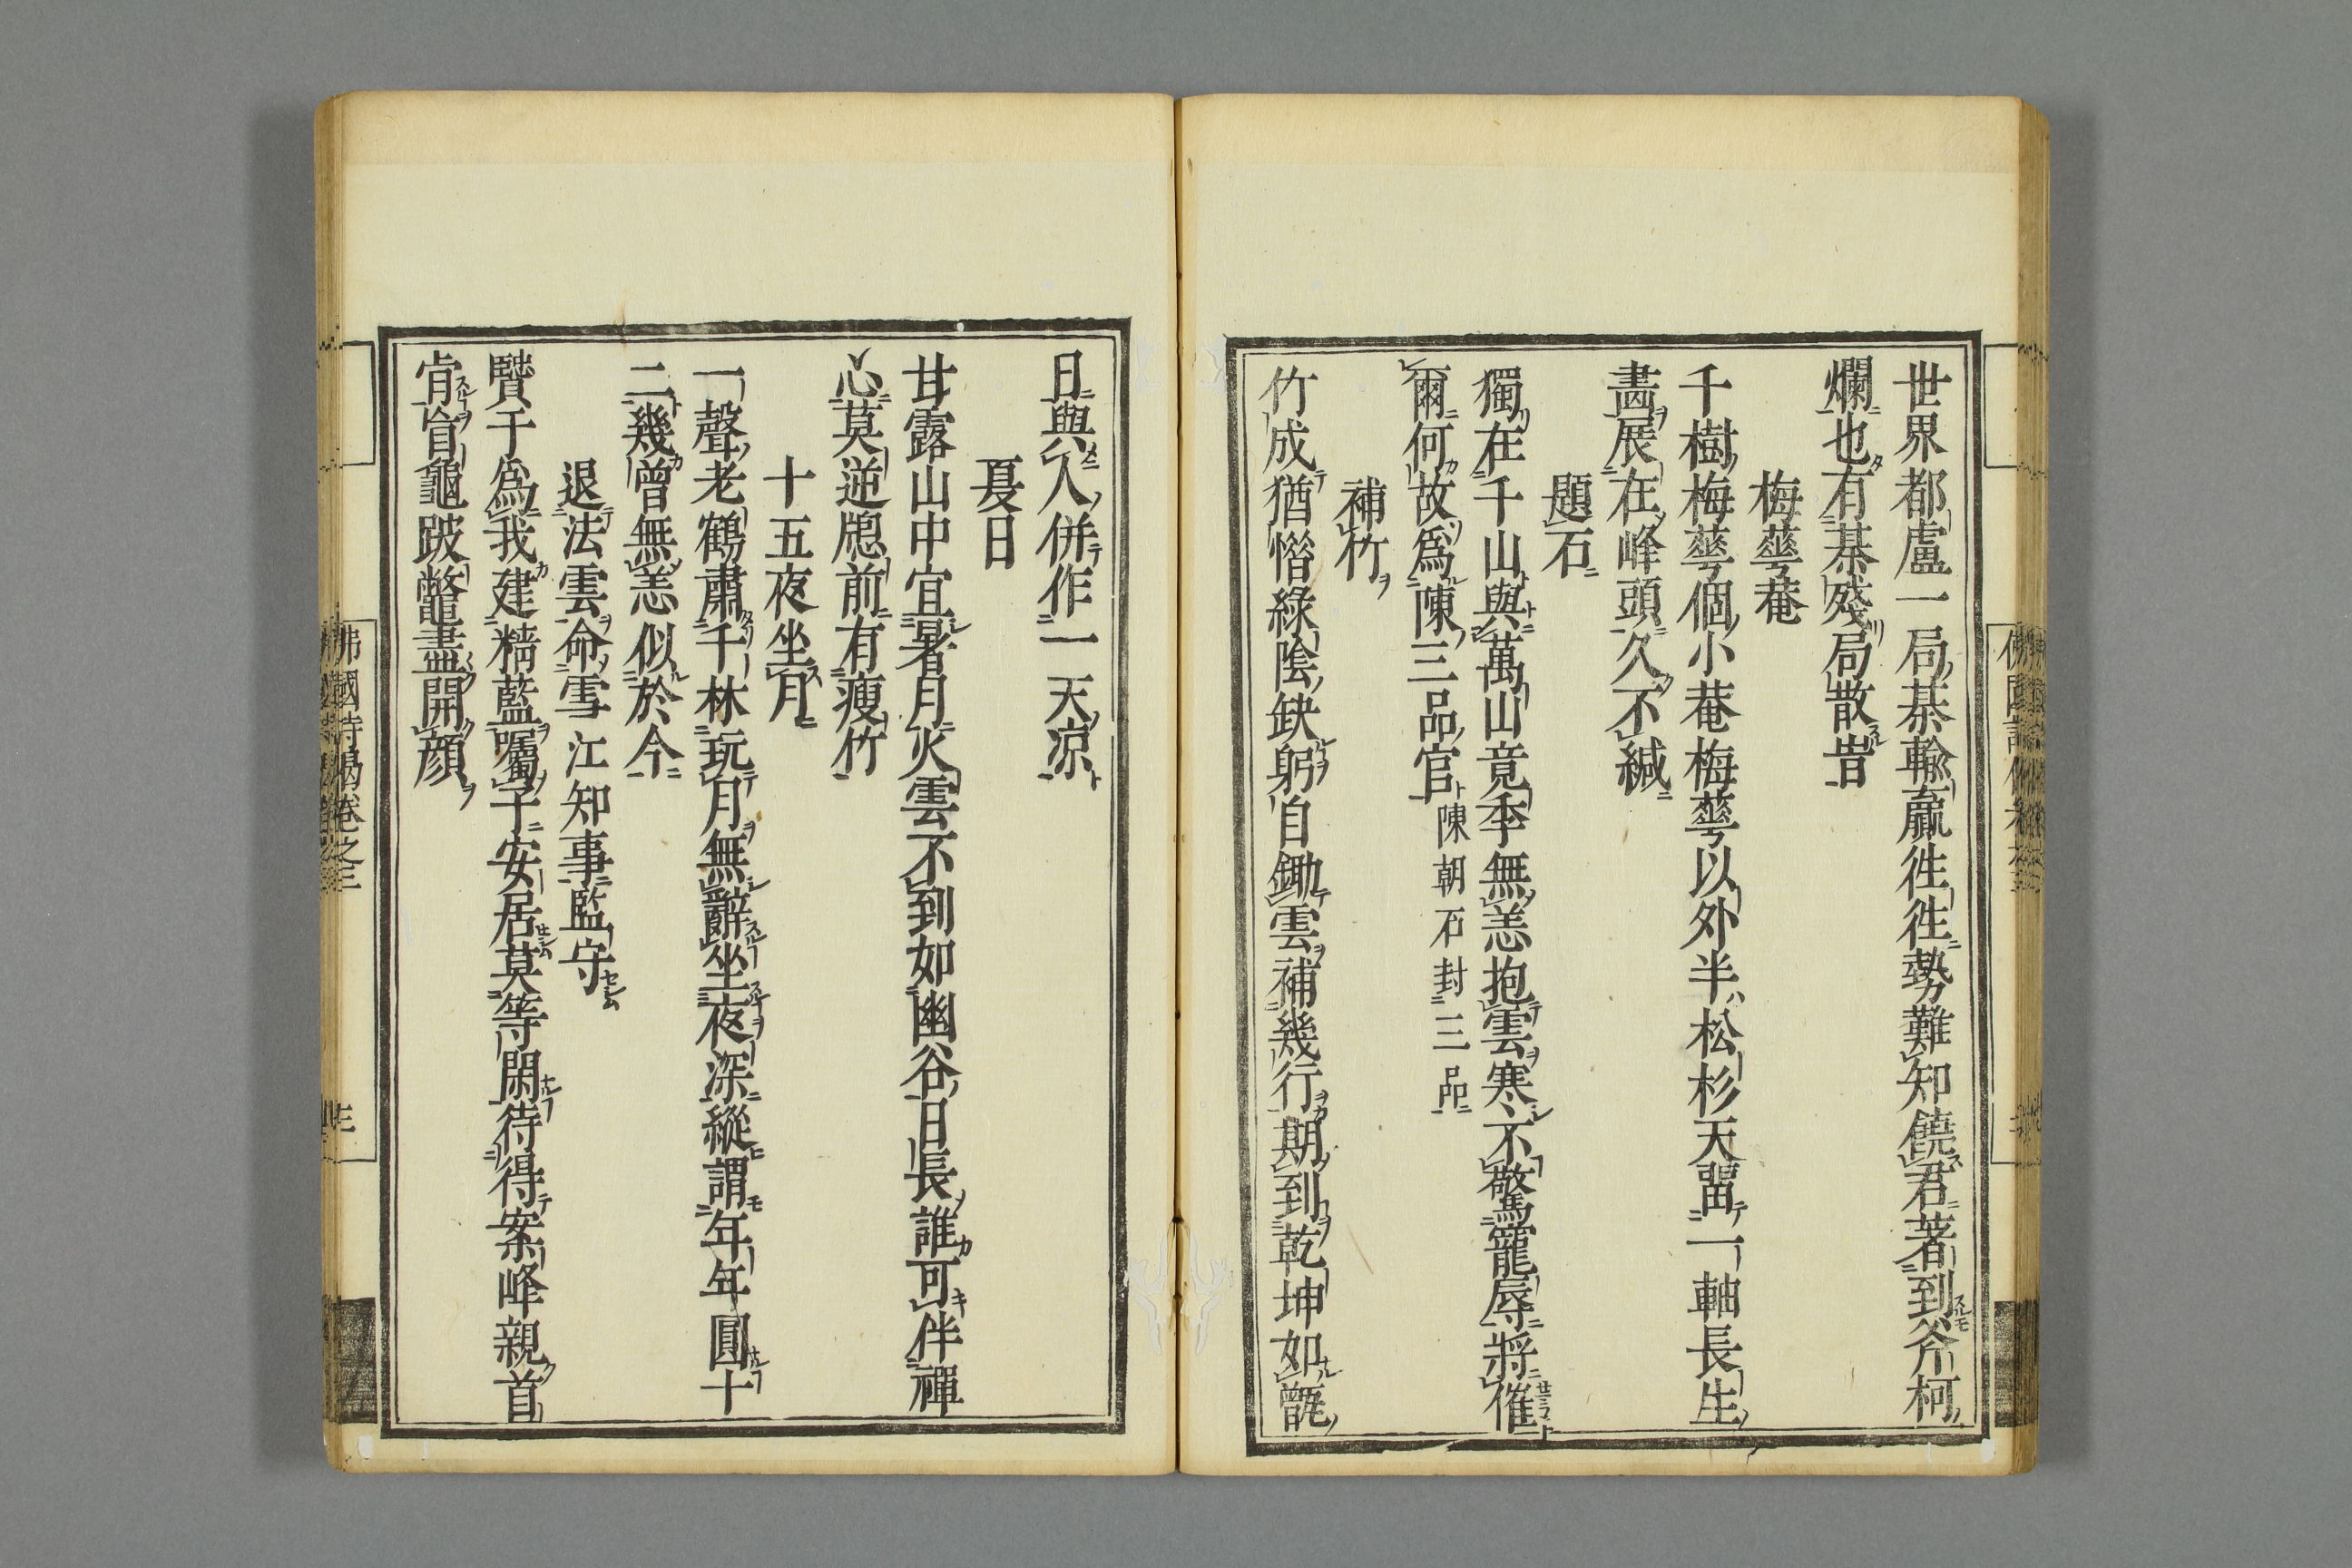 世界都盧一局棊輸贏徃徃勢難知饒君著到斧柯
爛也有棊殘局散旹
梅蕚菴
千樹梅蕚個小菴梅蕚以外半松杉天畱一軸長生
畵展在峰頭久不緘
題石
獨在千山與萬山竟季無恙抱雲寒不驚寵辱將催
爾何故爲陳三品官陳朝石封三品
補竹
竹成猶憯綠陰缺躬自鋤雲補幾行期到乾坤如甑
日與人併作一天凉
夏日
甘露山中宜暑月火雲不到如幽谷日長誰可伴禪
心莫逆牎前有瘦竹
十五夜坐月
一聲老鶴肅千林玩月無辭坐夜深縱謂年年圓十
二幾曾無恙似於今
退法雲命雪江知事監守
贒于爲我建精藍囑子安居莫等閑待得案峰親首
肯盲龜跛鼈盡開顔
佛國詩偈卷之三